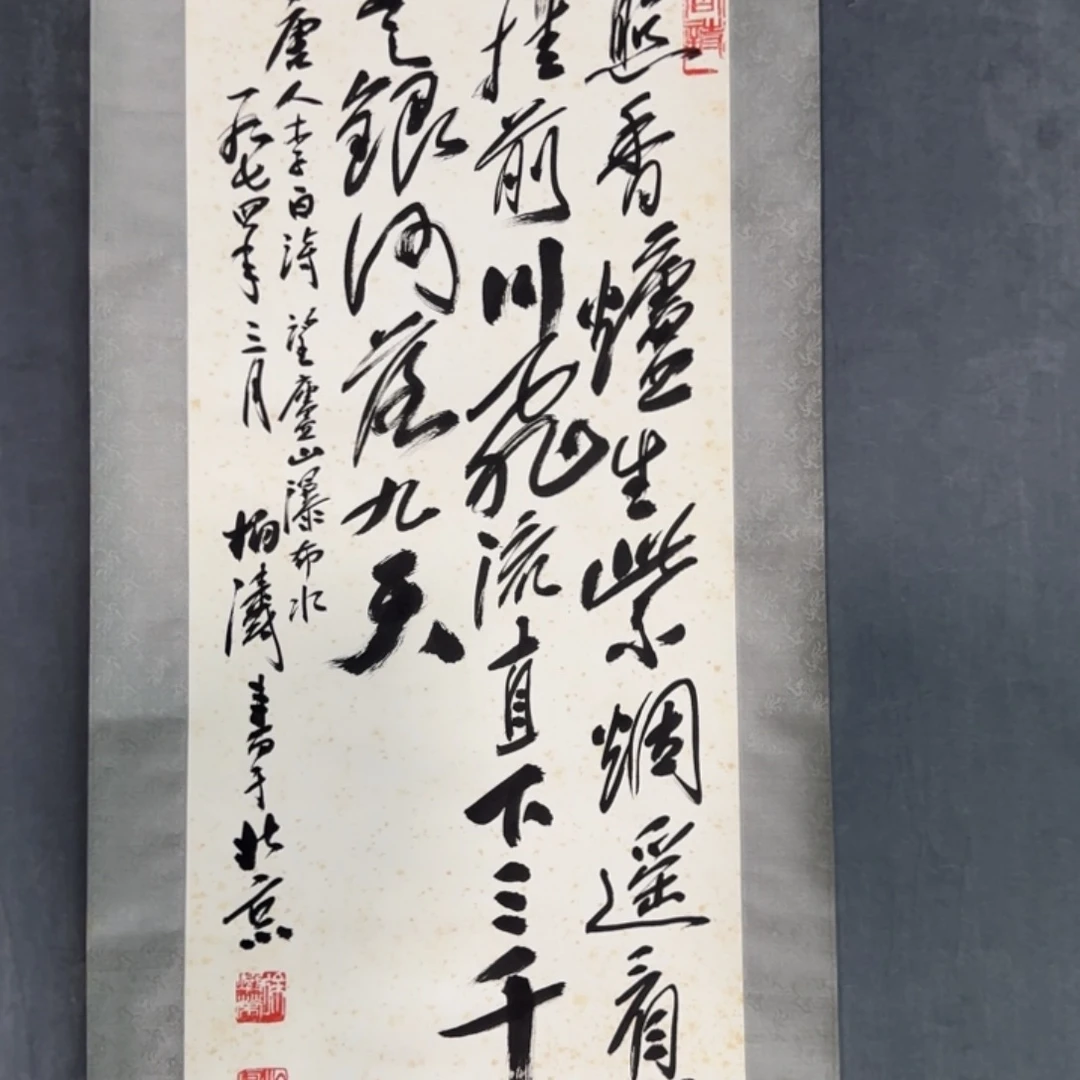 照香爐生紫烟遥看
挂前川飛流直下三千
是銀河落九天
唐人李白詩望廬山瀑布水
一九七四年三月柏濤書于北京